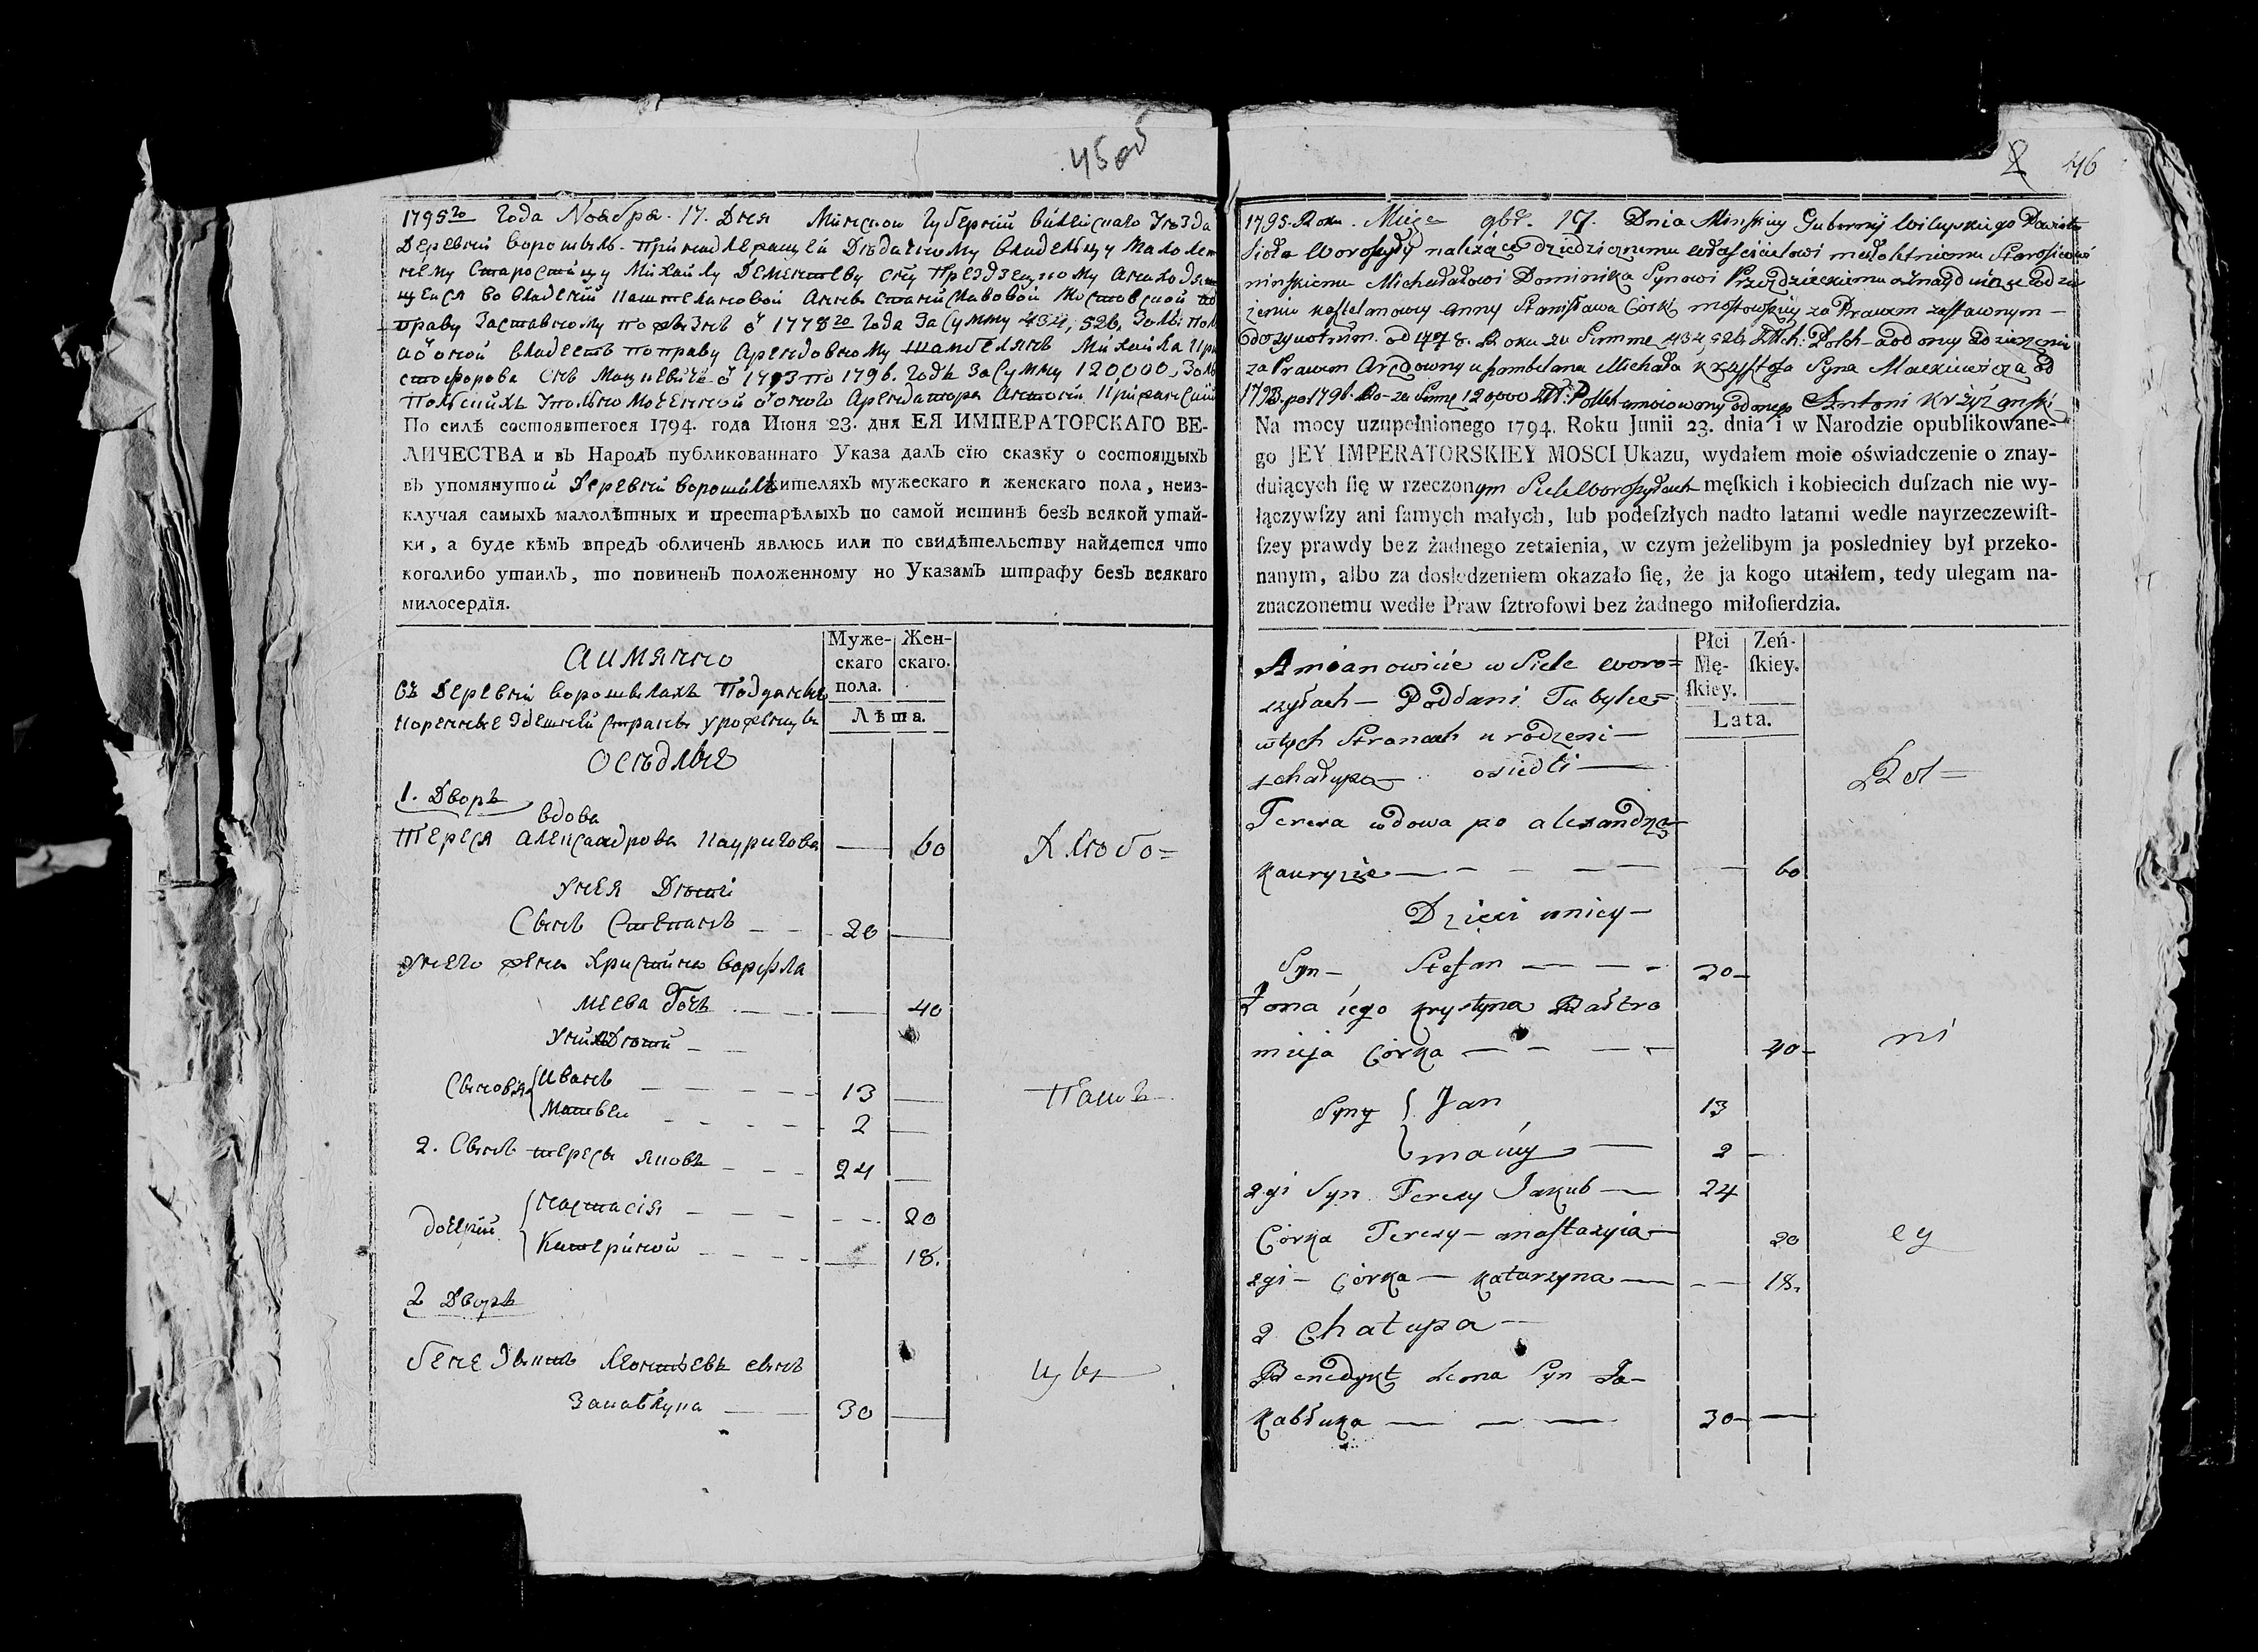 45об
1795го Года Ноября. 17. Дня Минской Губерний Вилейскаго Уѣзда
Деревни Ворошилъ принадлежащей Дѣдичному Владельцу Малолет
нему Старостицу Михайлу Дементеву сну Прездзецкому а находя
щейся во владений Каштеляновой Анны Станиславовой Мостовской по
праву Заставному по жизнь о 1778го Года За Сумму 434,526, Золъ: Пол
а о оной владеетъ по праву Арендовному Шамбелянъ Михайла Кри
стофорова снъ Мацкевичъ о 1793 по 1796. Годъ За Сумму 120000, Золъ
Польскихъ Уполномоченной о оного Арендатора Антоній Крижанскій
По силѣ состоявшегося 1794. года Июня 23. дня ЕЯ ИМПЕРАТОРСКАГО ВЕ-
ЛИЧЕСТВА и въ Народъ публикованнаго Указа далъ сїю сказку о состоящыхъ
въ упомянутой Деревни Ворошилъ жителяхъ мужескаго и женскаго пола, неиз-
ключая самыхъ малолѣтных и престарѣлыхъ по самой истинѣ безъ всякой утай-
ки, а буде кѣмъ впредъ обличенъ явлюсь или по свидѣтельству найдется что
коголибо утаилъ, то повиненъ положенному по Указамъ штрафу безъ всякаго
милосердїя.
Муже-скаго пола. Жен-скаго.
Лѣта.
Аимянно
Въ Деревни Ворошилахъ Подданые
Коренные Здешней Страны уроженцы
Оседлые
1. Дворъ
вдова
Тереся Александрова Кауричова — 60 Любо=
У нея Дети
Сынъ Степанъ - - 20 —
У него жена Христина Варфла
меева дочь - - — 40
У них Дети -
Сыновя Иванъ - - - 13 — Панъ
Матвей - - - 2 —
2. Сынъ Тересы Яковъ - - - 24 —
дочери Настасія - - - 20
Катериной - - - — 18.
2 Дворъ
Бенедыктъ Леонтьевъ сынъ
Закаблука — 30 — цкы
2 46
1795. Roku. Mięże 9br. 17. Dnia Minskiey Gubernij Wileyskiego Powiatu
Sioła Woroszyły należące dziedzicznemu właścicielowi małoletniemu Starosicowi
minskiemu Michałałowi Dominika Synowi Przeździeckiemu a znayduiące się w zadzier
żeniu kasztelanowey Anny Stanisława Córki mostowskiey za Prawem zastawnym —
dożywotnim. od 1778. Roku za Summę 434,526, Złłch: Polch — a od oney do zadzierżenia
za Prawem Arędownym szambelana Michała Krzysztofa Syna Mackiewicza od
1793. po 1796. Ro- za Sumę 120,000 Złł: Polch umocowany od onego Antoni Krzyżanski
Na mocy uzupełnionego 1794. Roku Junii 23. dnia i w Narodzie opublikowane-
go JEY IMPERATORSKIEY MOSCI Ukazu, wydałem moie oświadczenie o znay-
duiących ſię w rzeczonym Siele Woroszyłach męſkich i kobiecich duſzach nie wy-
łączywſzy ani ſamych małych, lub podeſzłych nadto latami wedle nayrzeczewiſt-
ſzey prawdy bez żadnego zetaienia, w czym jeżelibym ja posledniey był przeko-
nanym, albo za dosledzeniem okazało ſię, że ja kogo utaiłem, tedy ulegam na-
znaczonemu wedle Praw ſztrofowi bez żadnego miłoſierdzia.
Płci Mę-ſkiey. Zeń-ſkiey.
Lata.
Amianowicie w Siele Woro=
szyłach — Poddani Tu bylce=
w tych Stronach urodzeni —
1 chałupa — osiedli —
Teresa wdowa po alexandrze
Kaurycie — - - 60
Dzieci mnicy —
Syn — Stefan — — 20 —
Żona iego Krystyna Bałtro
mieja Córka — - — 40 — ni
Syny Jan 13
maciey — 2 —
2gi Syn Teresy Jakub — 24
Córka Teresy — anastazyia — 20 ey
2gi — Córka — Katarzyna — - — 18.
2 Chałupa —
Benedykt Leona Syn Za-
kabłuka — — — 30 — —